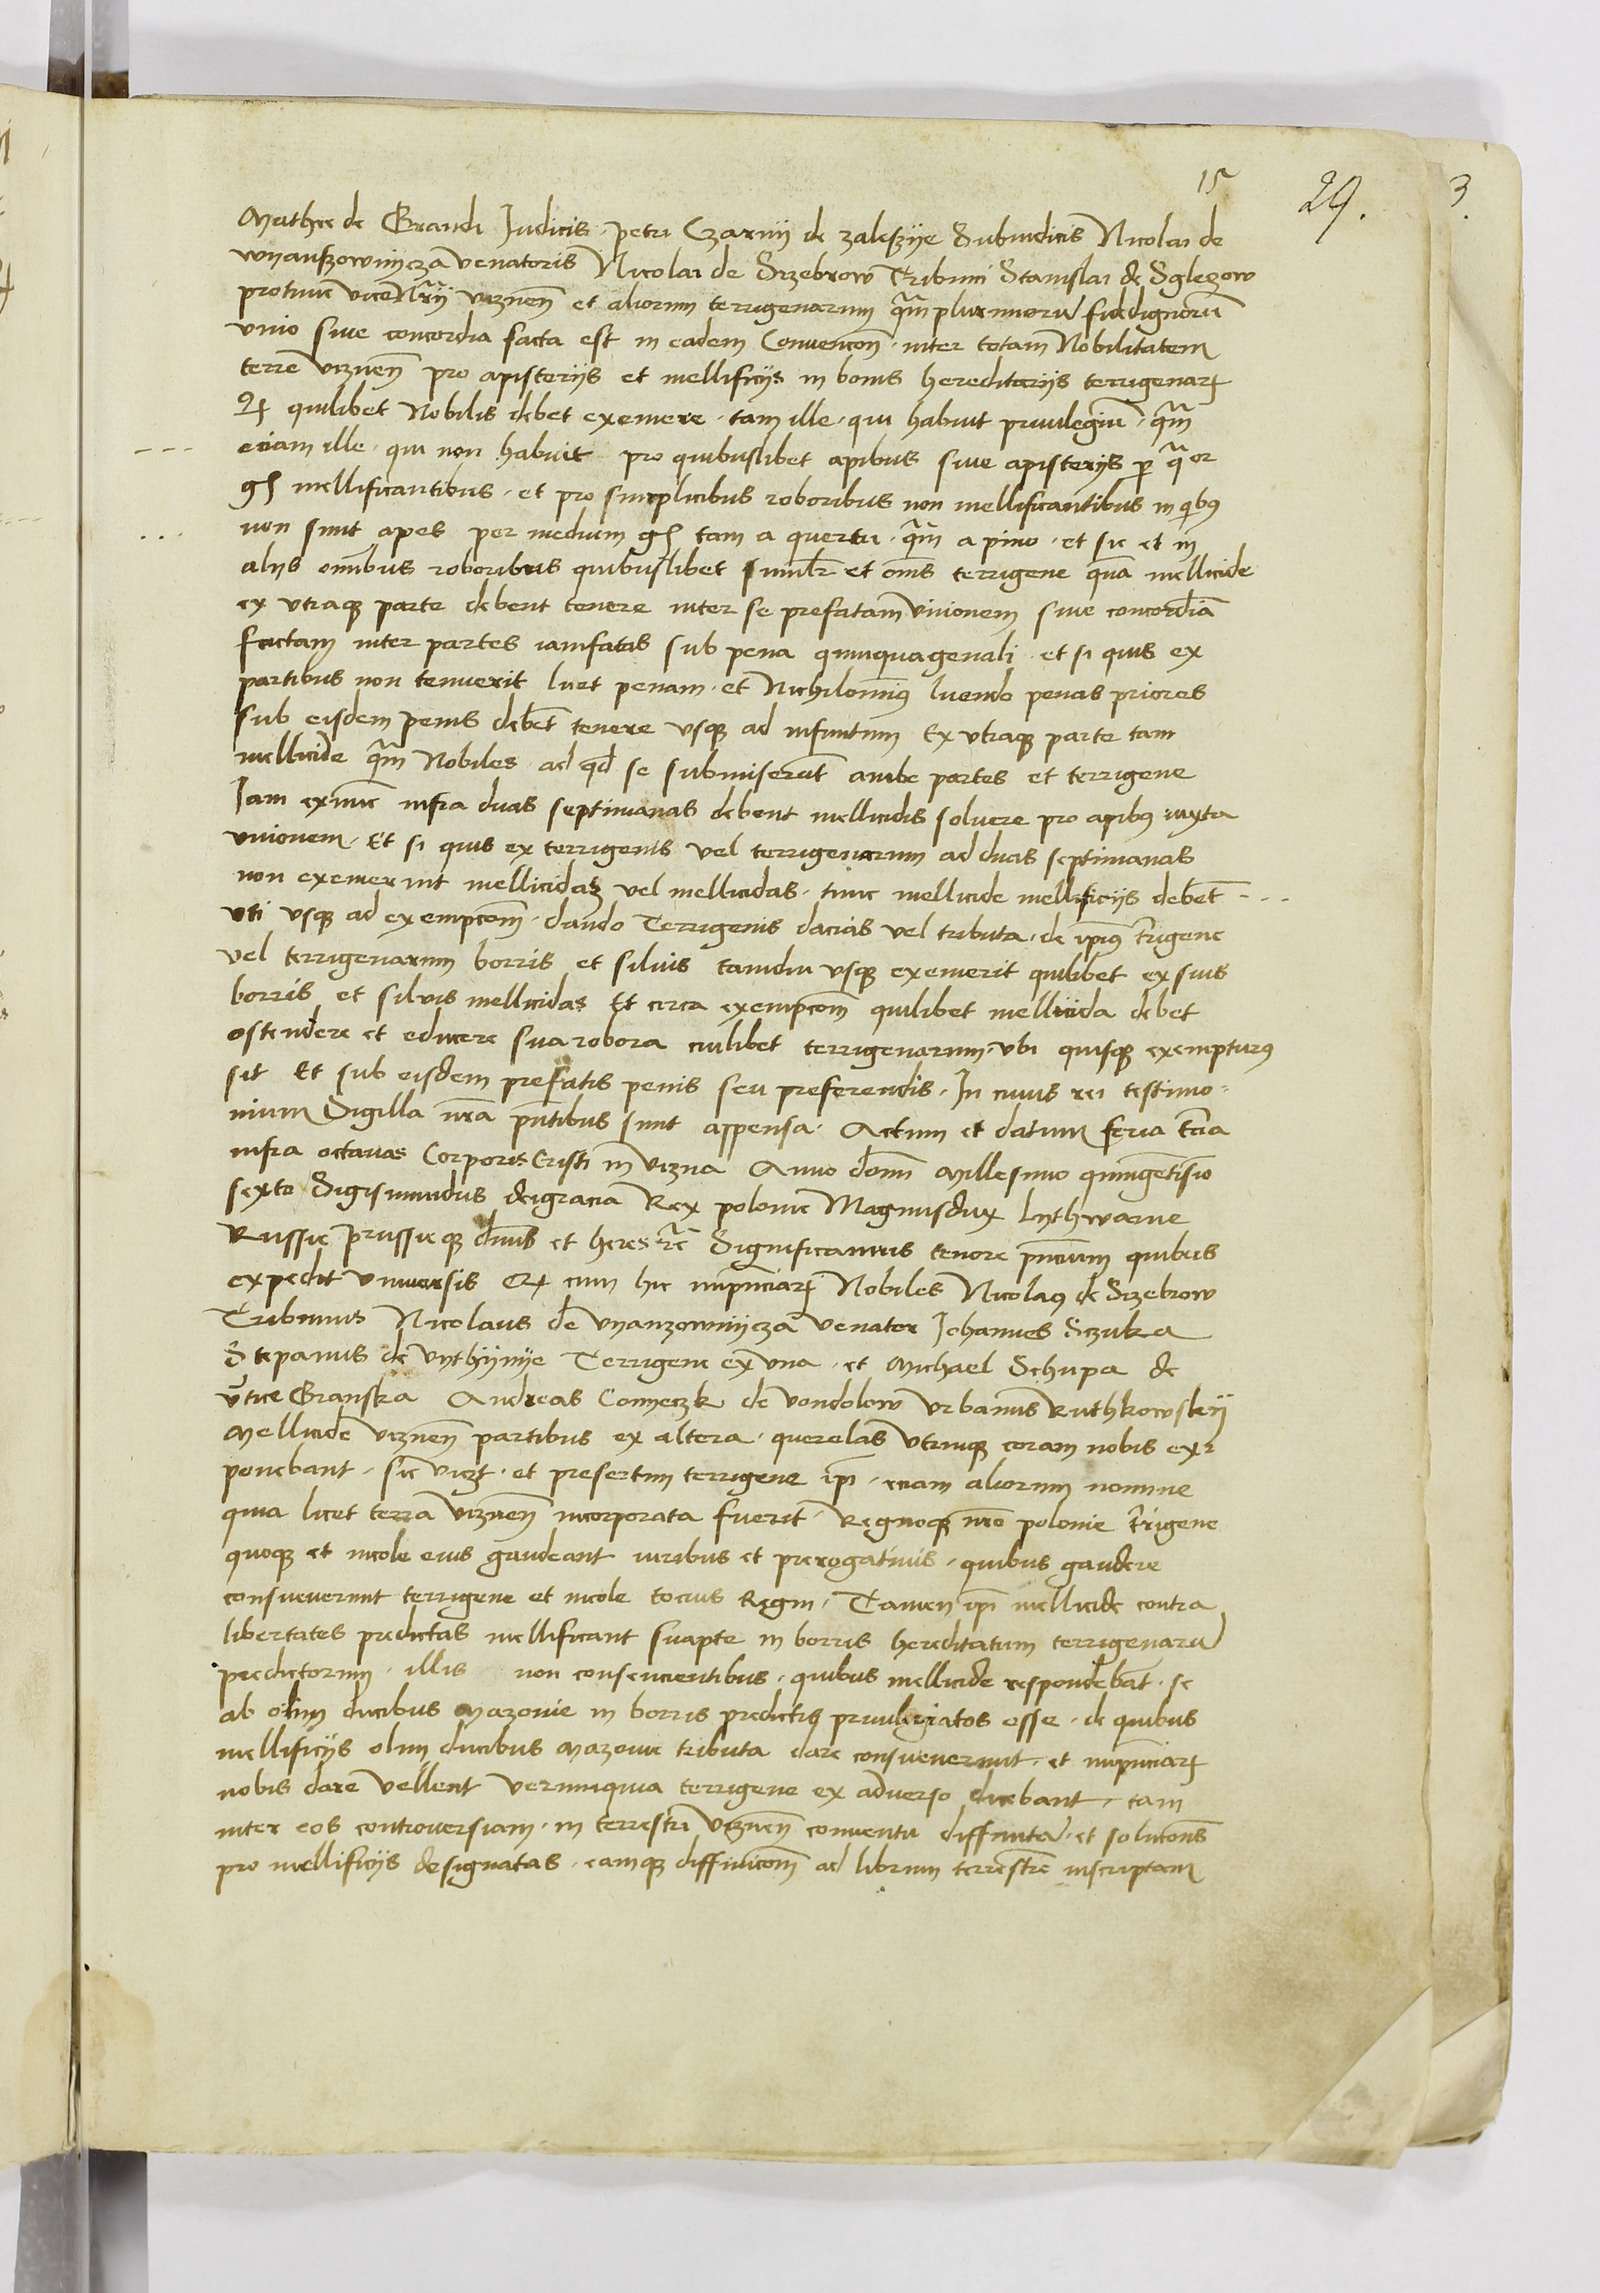 15
29.
3.
Mathee de Grandi Judicis Petri Czarnij de zaleszije Subiudicis Nicolai de
wnanszowmijcza venatoris Nicolai de Srzebrow Tribuni Stanislai de Sglezow
protunc viceNrÿ viznen̄ et aliorum terrigenarum q̄m plurimorū fidedignorū
vnio siue concordia facta est in eadem Conuencōn̄ inter totam Nobilitatem
terre viznen̄ pro apisterijs et mellificijs in bonis hereditarijs terrigenaꝝ
Qꝫ quilibet Nobilis debet exemere tam ille qui habuit priuilegiū q̄m
eciam ille qui non habuit pro quibuslibet apibus siue apisterijs p qᵃor
gꝭ mellificantibus et pro simplicibus roboribus non mellificantibus in qibꝰ
non sunt apes per medium gꝭ tam a quercu q̄m a pino et sic et in
alijs omībus roboribus quibuslibet similr̄ et om̄s terrigene quā mellicide
ex vtraqꝫ parte debent tenere inter se prefatam vnionem siue concordiā
factam inter partes iamfatas sub pena quinquagenali et si quis ex
partibus non tenuerit luet penam et Nichilominꝰ luendo penas priores
sub eisdem penis debēt tenere vsqꝫ ad infinitum Ex vtraqꝫ parte tam
mellicide q̄m Nobiles ad qd̄ se submiserūt ambe partes et terrigene
Jam exnunc infra duas septimanas debent mellicidis soluere pro apibꝰ iuxta
vnionem Et si quis ex terrigenis vel terrigenarum ad duas septimanas
non exemerint mellicidaz vel mellicidas tunc mellicide mellificijs debēt
vti vsqꝫ ad exempcōm dando Terrigenis dacias vel tributa de ip̄iꝰ t̄rigene
vel terrigenarum borris et siluis tamdiu vsqꝫ exemerit quilibet ex suis
borris et siluis mellicidas Et circa exempcōm quilibet mellicida debet
ostendere et educere sua robora cuilibet terrigenarum vbi quisqꝫ exempturꝰ
sit Et sub eisdem prefatis penis seu preferendis In cuius rei testimo-
nium Sigilla nr̄a pn̄tibus sunt appensa Actum et datum feria t̄cia
infra octauas Corporis Cristi in vizna Anno dom̄ Millesimo quingētisīo
sexto Sigismundus deigracia Rex polonie Magnusdux Lythwanie
Russie prussieqꝫ dn̄us et heres r̄c Significamus tenore pn̄cium quibus
expedit vniuersis Qꝫ cum hic inpn̄ciaꝝ Nobiles Nicolaꝰ de Srzebrow
Tribunus Nicolaus de vnanzowmijcza venator Johannes Sczuka
Stepanus de vnthijnije Terrigene ex vna et Michael Schupa de
vtice Granska Andreas Comeczk de vondolow vrbanus Ruthkowskij
Mellicide viznen̄ partibus ex altera querelas vtrinqꝫ coram nobis ex-
ponebant sic vicꝫt et presertim terrigene ip̄i eciam aliorum nomine
quia licet terra viznen̄ incorporata fuerit Regnoqꝫ nr̄o polonie t̄rigene
quoqꝫ et incole eius gaudeant iuribus et prerogatiuis quibus gaudere
consueuerunt terrigene et incole tocius Regni Tamen ip̄i mellicide contra
libertates predictas mellificant suapte in borris hereditatum terrigenarū
predictorum illis non consencientibus quibus mellicide respondebāt se
ab olim ducibus Mazouie in borris predictis priuilegiatos esse de quibus
mellificijs olim ducibus Mazouie tributa dare consueuerunt et inpn̄ciaꝝ
nobis dare vellent verumquia terrigene ex aduerso dicebant tam
inter eos controuersiam in terrestri viznen̄ conuentu diffinitā et solucōns
pro mellificijs designatas eamqꝫ diffinicōm ad librum terrestrē inscriptam